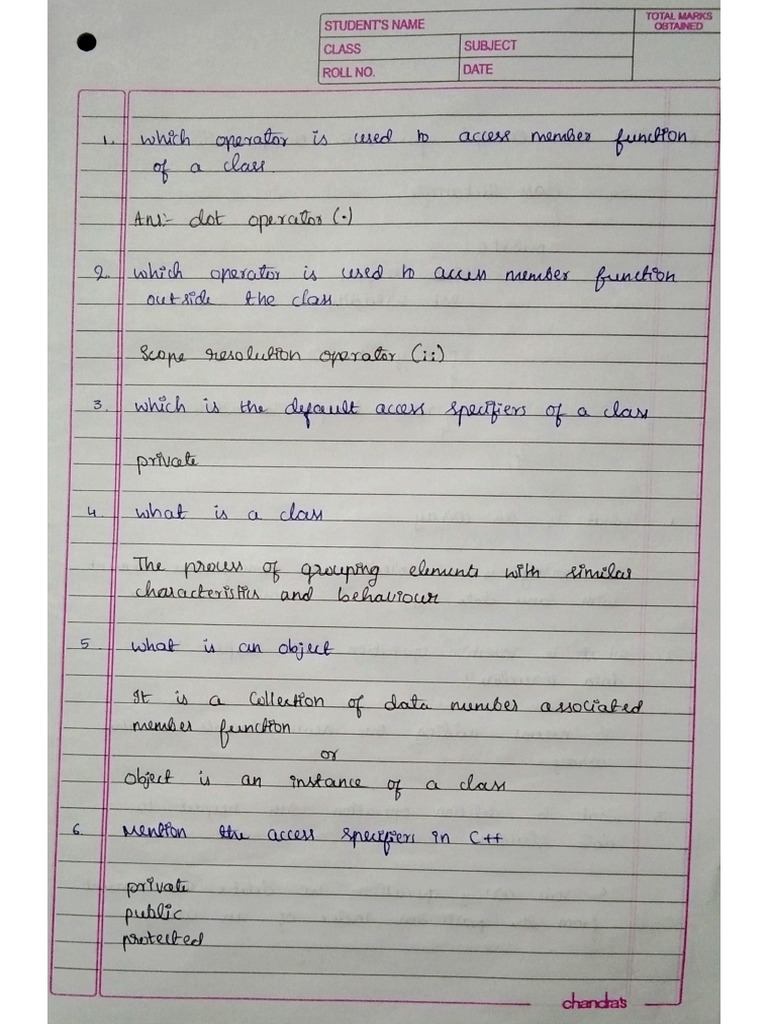 STUDENT'S NAME
TOTAL MARKS OBTAINED
CLASS
SUBJECT
ROLL NO.
DATE
1. which operator is used to access member function
of a class.
Ans:- dot operator (.)
2. which operator is used to access member function
outside the class.
Scope resolution operator (::)
3. which is the default access specifiers of a class
private
4. what is a class
The process of grouping elements with similar
characteristics and behaviour
5 what is an object
It is a collection of data member associated
member function.
or
object is an instance of a class
6. Mention the access specifiers in C++
private
public
protected
chandra's